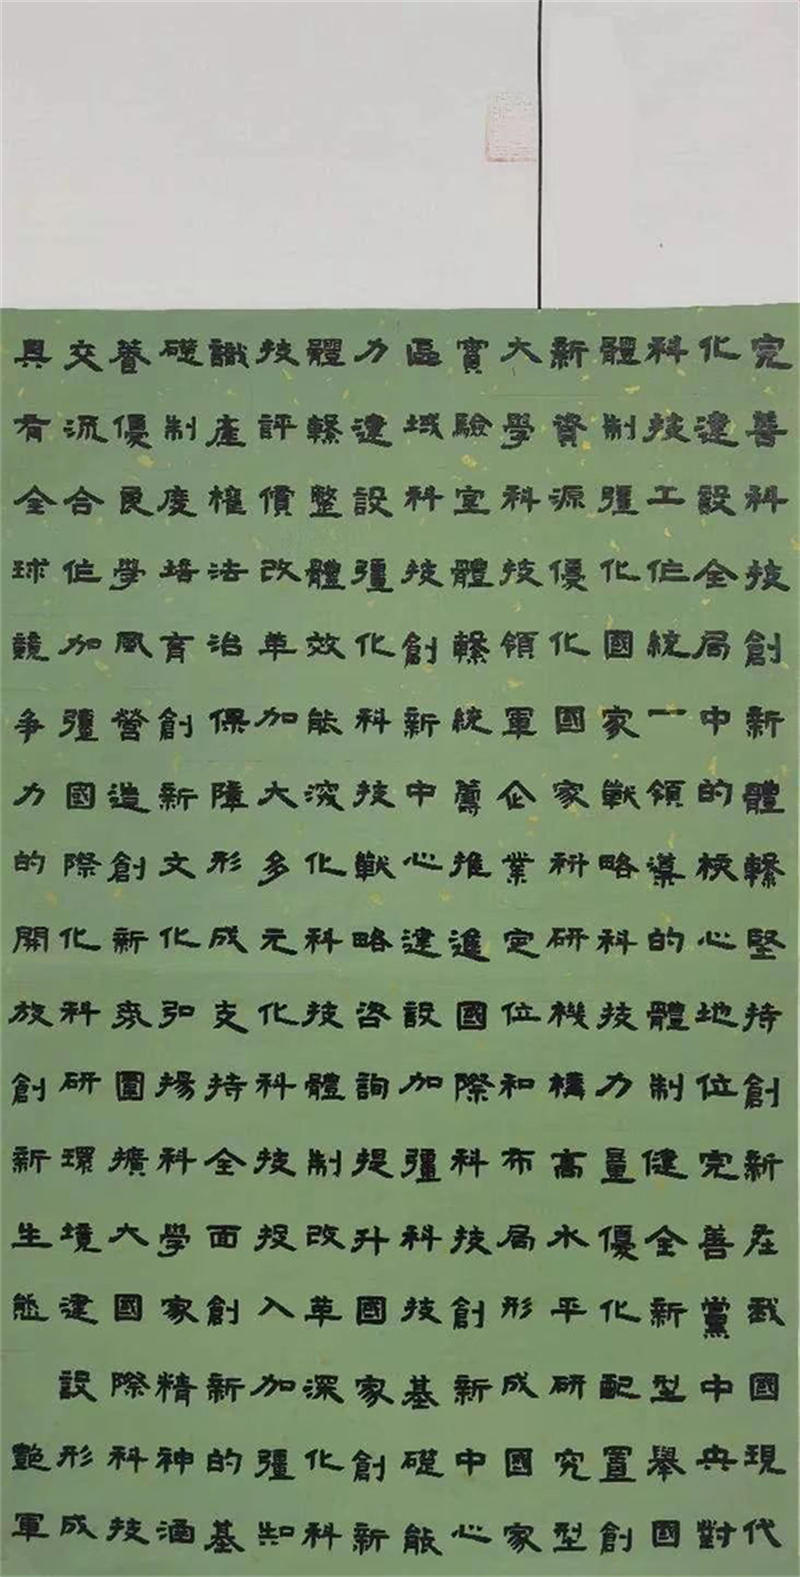 完善科技創新體繫堅持創新在我國現代
化建設全局中的核心地位完善黨中央對
科技工作統一領導的體制健全新型舉國
體制彊化國家戰略科技力量優化配置創
新資源優化國家科研機構高水平研究型
大學科技領軍企業定位和布局形成國家
實驗室體繫統籌推進國際科技創新中心
區域科技創新中心建設加彊科技基礎能
力建設彊化科技戰略咨詢提升國家創新
體繫整體效能深化科技體制改革深化科
技評價改革加大多元化科技投入加彊知
識產權法治保障形成支持全面創新的基
礎制度培育創新文化弘揚科學家精神涵
養優良學風營造創新氛圍擴大國際科技
交流合作加彊國際化科研環境建設形成
具有全球競爭力的開放創新生態 艷軍